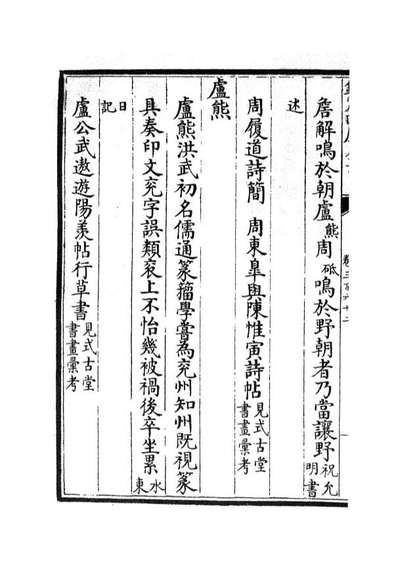 詹解鳴於朝盧熊周砥鳴於野朝者乃當讓野祝允明書
述
周履道詩簡 周東皐與陳惟寅詩帖見式古堂書畫彙考
盧熊
盧熊洪武初名儒通篆籀學嘗為兖州知州既視篆
具奏印文兖字誤類衮上不怡幾被禍後卒坐累水東
日記
盧公武遨遊陽羨帖行草書見式古堂書畫彙考
卷三百六十二